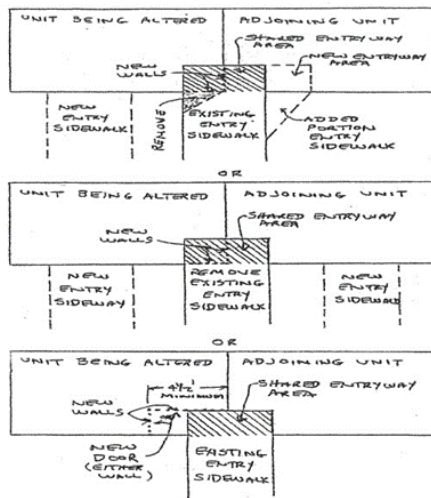 UNIT BEING ALTERED
ADJOINING UNIT
NEW WALLS
SHARED ENTRYWAY AREA
NEW ENTRYWAY AREA
NEW ENTRY SIDEWALK
REMOVE
EXISTING ENTRY SIDEWALK
ADDED PORTION ENTRY SIDEWALK
OR
UNIT BEING ALTERED
ADJOINING UNIT
NEW WALLS
SHARED ENTRYWAY AREA
NEW ENTRY SIDEWAY
REMOVE EXISTING ENTRY SIDEWALK
NEW ENTRY SIDEWALK
OR
UNIT BEING ALTERED
ADJOINING UNIT
4½' MINIMUM
NEW WALLS
SHARED ENTRYWAY AREA
NEW DOOR (EITHER WALL)
EXISTING ENTRY SIDEWALK